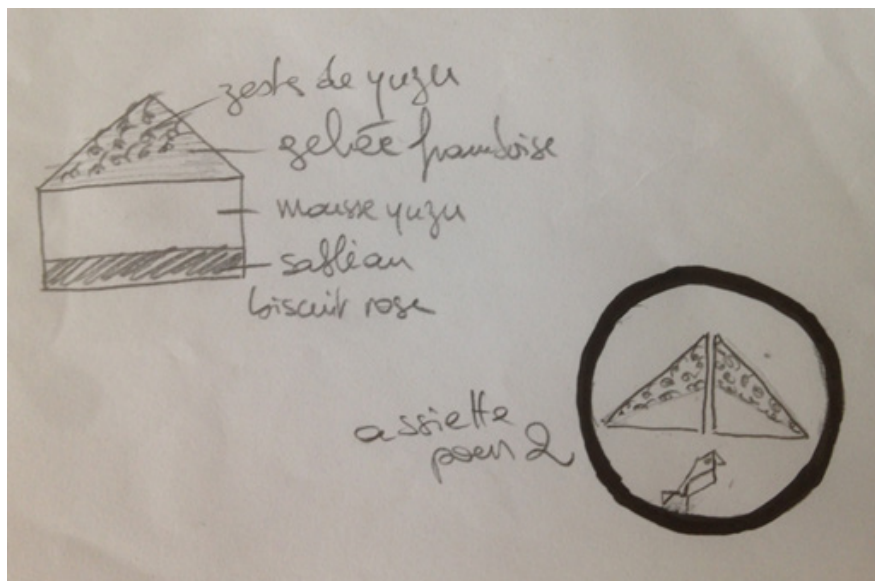 zestes de yuzu
gelée framboise
mousse yuzu
sablé au
biscuit rose
assiette
pour 2